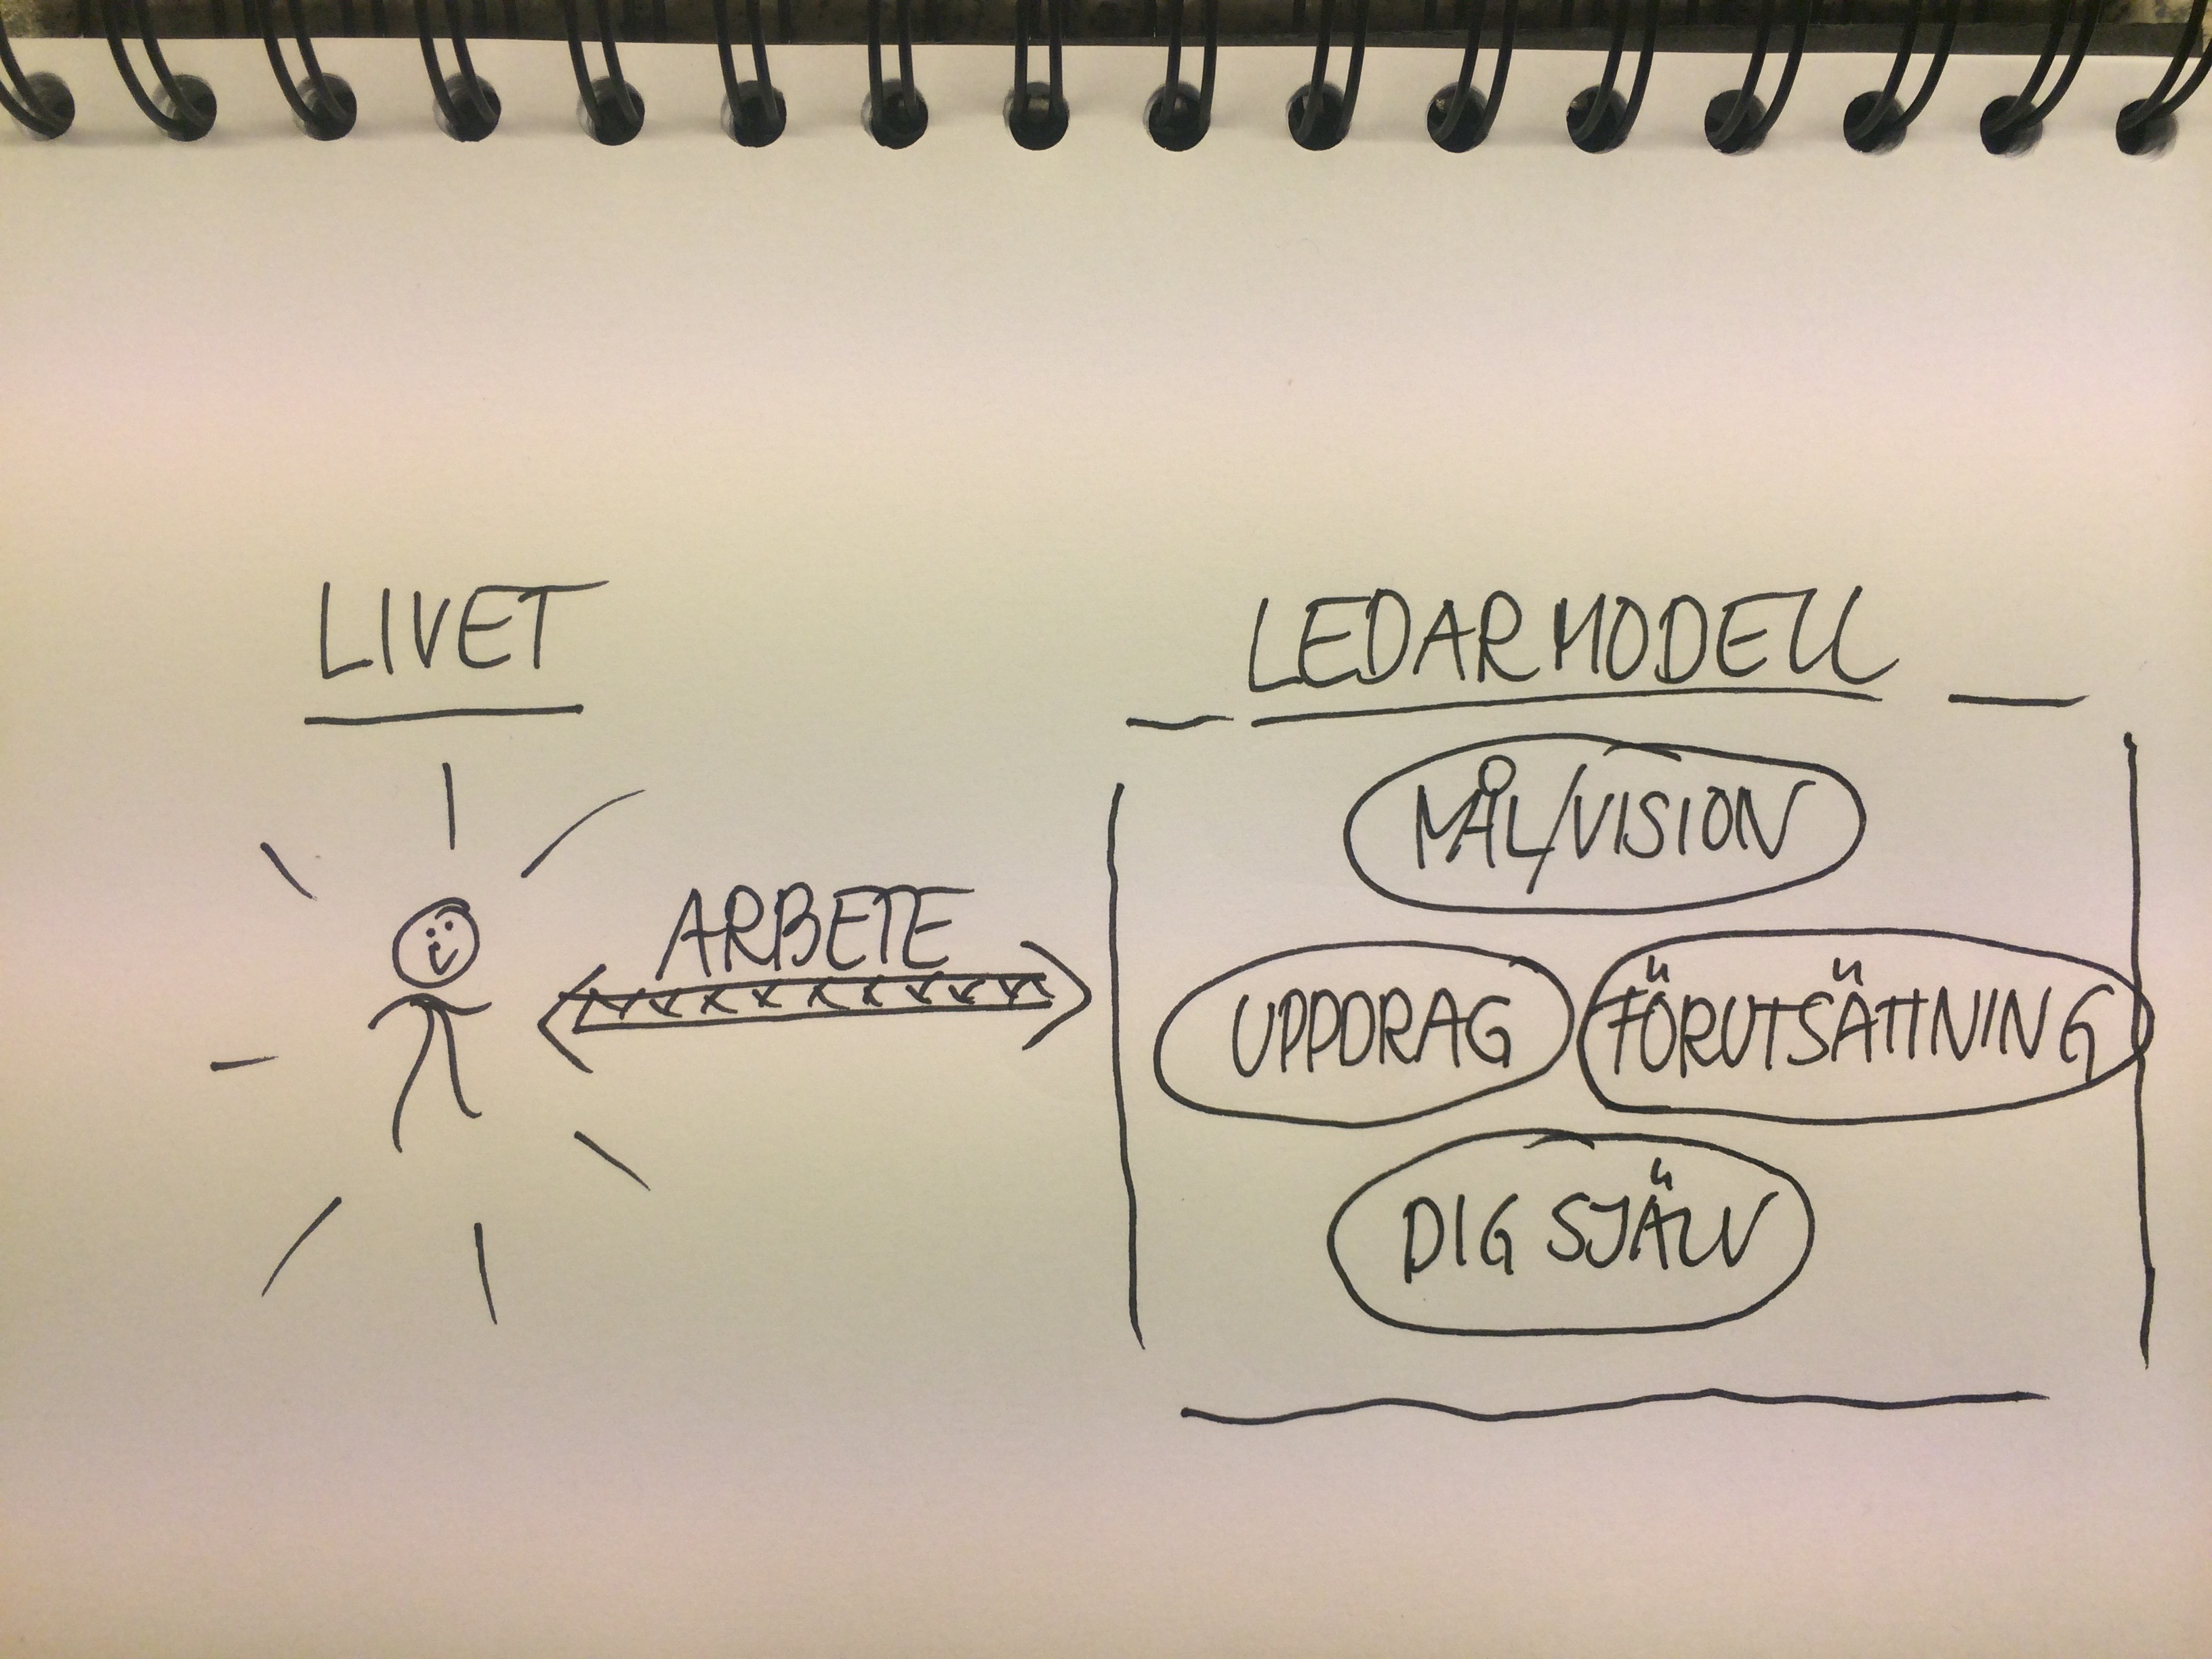 LIVET
LEDARMODELL
MÅL/VISION
ARBETE
UPPDRAG
FÖRUTSÄTTNING
DIG SJÄLV